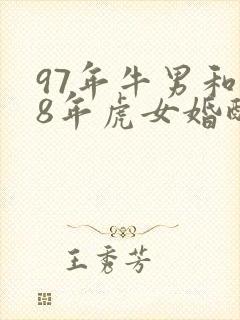 97年牛男和
8年虎女婚
王秀芳